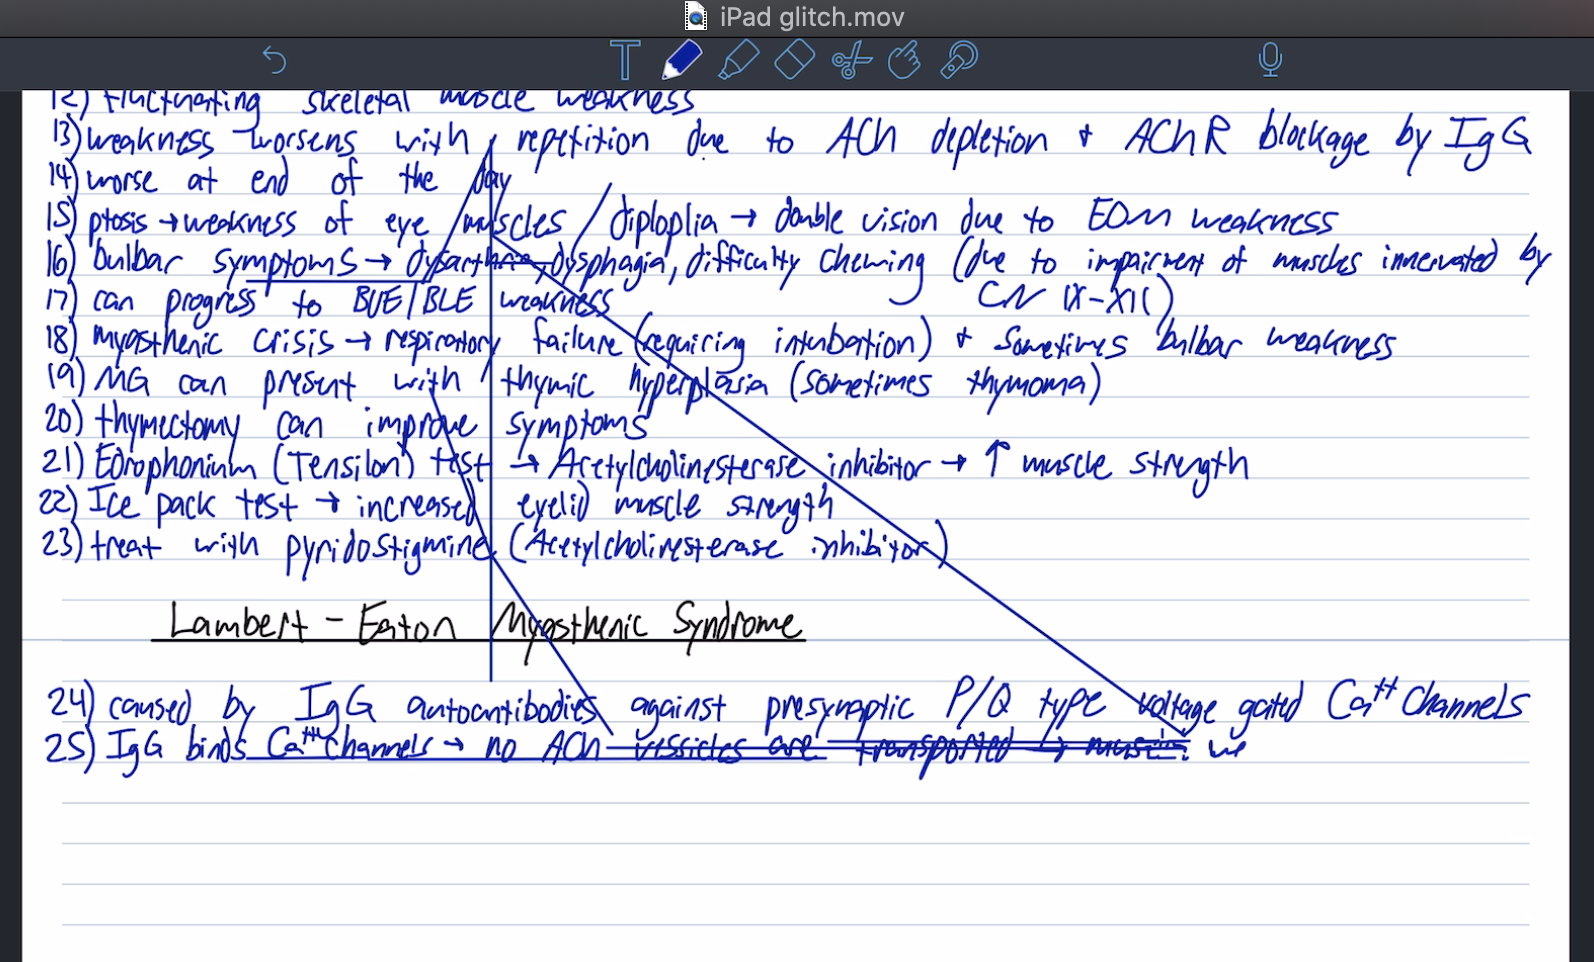 iPad glitch.mov
T
12) fluctuating skeletal muscle weakness
13) weakness worsens with repetition due to ACh depletion + AChR blockage by IgG
14) worse at end of the day
15) ptosis → weakness of eye muscles / diploplia → double vision due to EOM weakness
16) bulbar symptoms → dysarthria, dysphagia, difficulty chewing (due to impairment of muscles innervated by
CN IX-XII)
17) can progress to BUE/BLE weakness
18) myasthenic crisis → respiratory failure (requiring intubation) + sometimes bulbar weakness
19) MG can present with thymic hyperplasia (sometimes thymoma)
20) thymectomy can improve symptoms
21) Edrophonium (Tensilon) test → Acetylcholinesterase inhibitor → ↑ muscle strength
22) Ice pack test → increased eyelid muscle strength
23) treat with pyridostigmine (Acetylcholinesterase inhibitor)
Lambert-Eaton Myasthenic Syndrome
24) caused by IgG autoantibodies against presynaptic P/Q type voltage gated Ca++ channels
25) IgG binds Ca++ channels → no ACh vessicles are transported → we